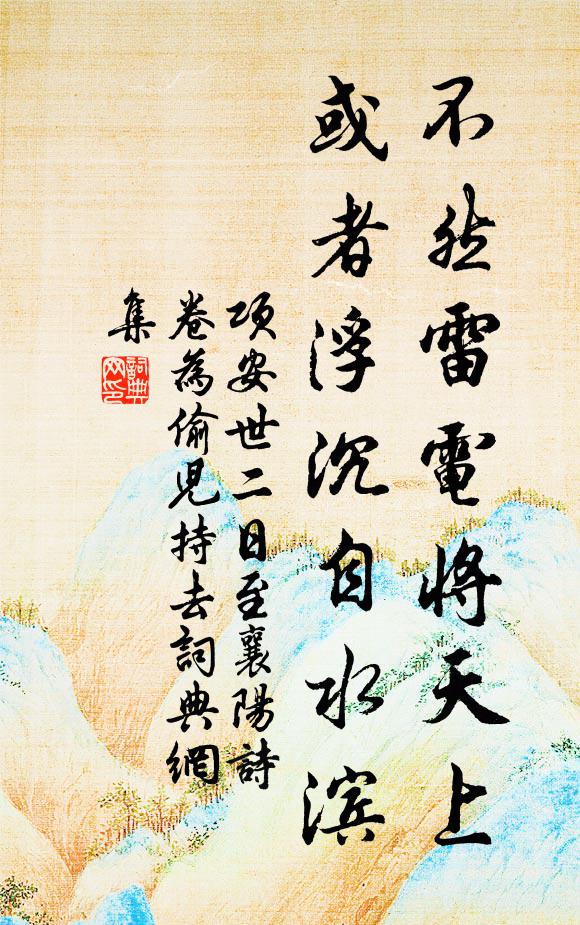 不然雷電將天上
或者浮沉自水滨
項安世二日至襄陽詩
卷為偷兒持去詞典網
集
詞典
网印